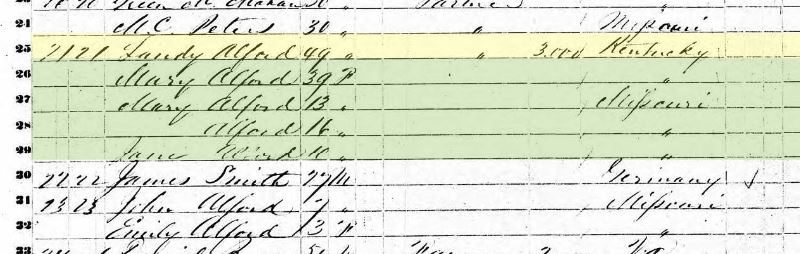 24 M C Peters 30 " " Missouri
25 21 21 Landy Alford 49 " " 3.000 Kentucky
26 Mary Alford 39 F "
27 Mary Alford 13 " Missouri
28 Alford 16 " "
29 Jane Alford 10 " "
30 22 22 James Smith 27 M Germany
31 23 23 John Alford 7 " Missouri
32 Emily Alford 3 F "
33